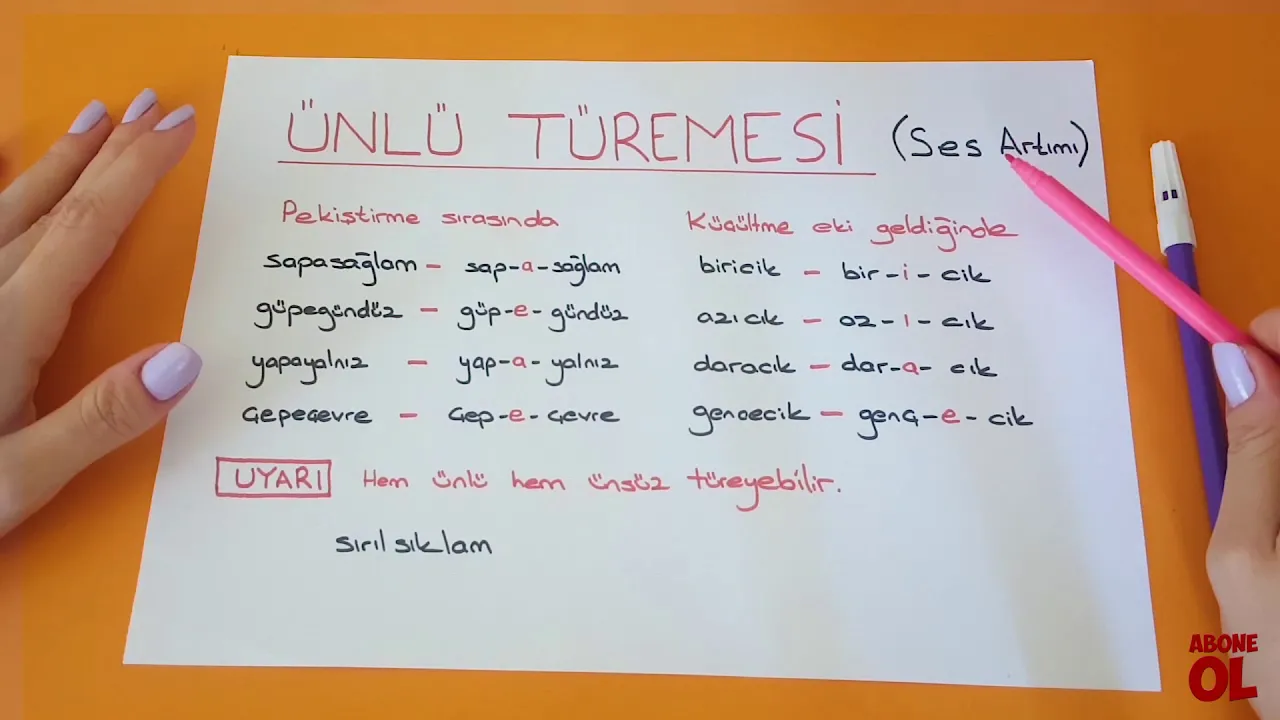 ÜNLÜ TÜREMESİ (Ses Artımı)
Pekiştirme sırasında
sapasağlam - sap-a-sağlam
güpegündüz - güp-e-gündüz
yapayalnız - yap-a-yalnız
çepeçevre - çep-e-çevre
Küçültme eki geldiğinde
biricik - bir-i-cik
azıcık - az-ı-cık
daracık - dar-a-cık
gencecik - genç-e-cik
UYARI Hem ünlü hem ünsüz türeyebilir.
sırılsıklam
ABONE
OL